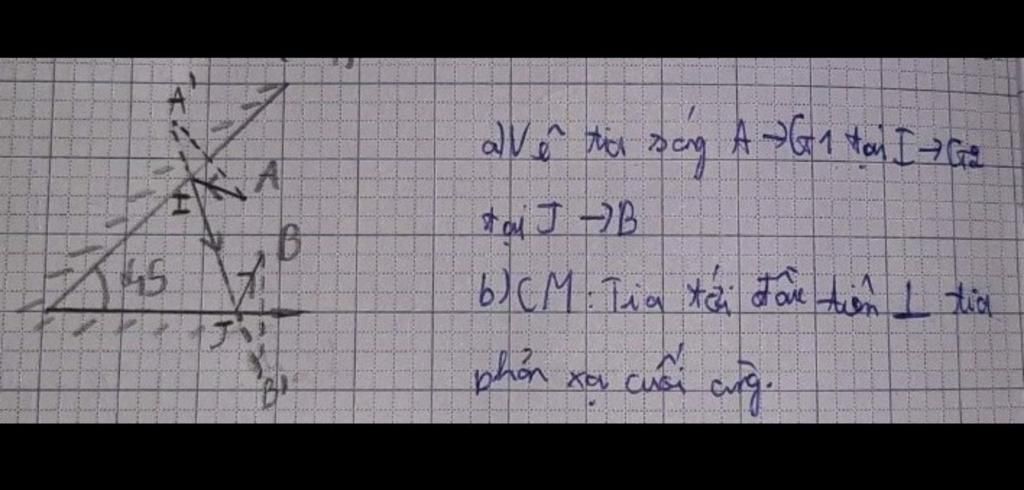 A'
A
I
B
45
J
B'
a) Vẽ tia sáng A → G1 tại I → G2
tại J → B
b) CM: Tia tới đầu tiên ⊥ tia
phản xạ cuối cùng.